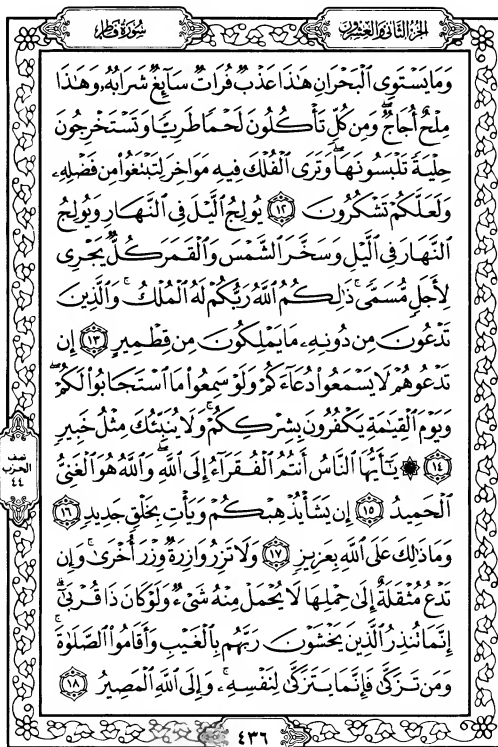 سُورَةُ فَاطِر
الجُزْءُ الثَّانِي وَالعِشْرُون
وَمَا يَسْتَوِي ٱلْبَحْرَانِ هَٰذَا عَذْبٌ فُرَاتٌ سَآئِغٌ شَرَابُهُۥ وَهَٰذَا
مِلْحٌ أُجَاجٌ ۖ وَمِن كُلٍّ تَأْكُلُونَ لَحْمًا طَرِيًّا وَتَسْتَخْرِجُونَ
حِلْيَةً تَلْبَسُونَهَا ۖ وَتَرَى ٱلْفُلْكَ فِيهِ مَوَاخِرَ لِتَبْتَغُوا۟ مِن فَضْلِهِۦ
وَلَعَلَّكُمْ تَشْكُرُونَ ١٢ يُولِجُ ٱلَّيْلَ فِى ٱلنَّهَارِ وَيُولِجُ
ٱلنَّهَارَ فِى ٱلَّيْلِ وَسَخَّرَ ٱلشَّمْسَ وَٱلْقَمَرَ كُلٌّ يَجْرِى
لِأَجَلٍ مُّسَمًّى ۚ ذَٰلِكُمُ ٱللَّهُ رَبُّكُمْ لَهُ ٱلْمُلْكُ ۚ وَٱلَّذِينَ
تَدْعُونَ مِن دُونِهِۦ مَا يَمْلِكُونَ مِن قِطْمِيرٍ ١٣ إِن
تَدْعُوهُمْ لَا يَسْمَعُوا۟ دُعَآءَكُمْ وَلَوْ سَمِعُوا۟ مَا ٱسْتَجَابُوا۟ لَكُمْ ۖ
وَيَوْمَ ٱلْقِيَٰمَةِ يَكْفُرُونَ بِشِرْكِكُمْ ۚ وَلَا يُنَبِّئُكَ مِثْلُ خَبِيرٍ
١٤ ۞ يَٰٓأَيُّهَا ٱلنَّاسُ أَنتُمُ ٱلْفُقَرَآءُ إِلَى ٱللَّهِ ۖ وَٱللَّهُ هُوَ ٱلْغَنِىُّ
ٱلْحَمِيدُ ١٥ إِن يَشَأْ يُذْهِبْكُمْ وَيَأْتِ بِخَلْقٍ جَدِيدٍ ١٦
وَمَا ذَٰلِكَ عَلَى ٱللَّهِ بِعَزِيزٍ ١٧ وَلَا تَزِرُ وَازِرَةٌ وِزْرَ أُخْرَىٰ ۚ وَإِن
تَدْعُ مُثْقَلَةٌ إِلَىٰ حِمْلِهَا لَا يُحْمَلْ مِنْهُ شَىْءٌ وَلَوْ كَانَ ذَا قُرْبَىٰٓ ۗ
إِنَّمَا تُنذِرُ ٱلَّذِينَ يَخْشَوْنَ رَبَّهُم بِٱلْغَيْبِ وَأَقَامُوا۟ ٱلصَّلَوٰةَ ۚ
وَمَن تَزَكَّىٰ فَإِنَّمَا يَتَزَكَّىٰ لِنَفْسِهِۦ ۚ وَإِلَى ٱللَّهِ ٱلْمَصِيرُ ١٨
نصف
الحزب
٤٤
٤٣٦